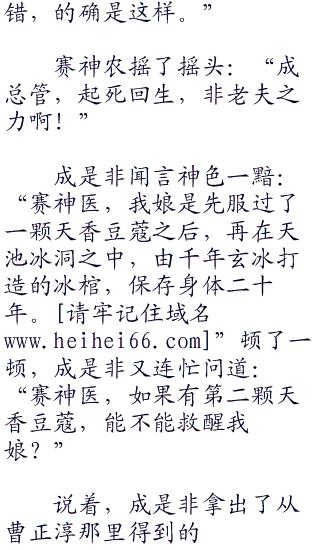 错，的确是这样。”
赛神农摇了摇头：“成
总管，起死回生，非老夫之
力啊！”
成是非闻言神色一黯：
“赛神医，我娘是先服过了
一颗天香豆蔻之后，再在天
池冰洞之中，由千年玄冰打
造的冰棺，保存身体二十
年。[请牢记住域名
www.heihei66.com]”顿了一
顿，成是非又连忙问道：
“赛神医，如果有第二颗天
香豆蔻，能不能救醒我
娘？”
说着，成是非拿出了从
曹正淳那里得到的